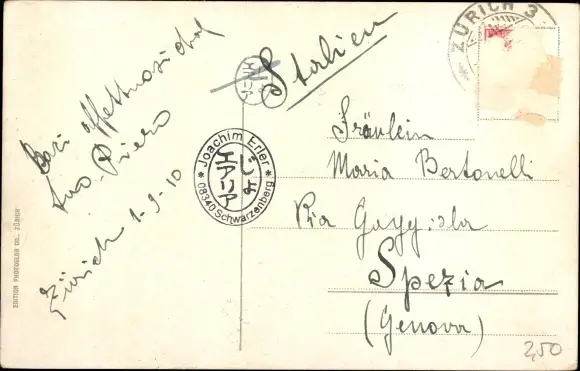 Baci affettuosi dal
tuo Piero
Zürich 1-9-10
EDITION PHOTOGLOB CO., ZÜRICH
* Joachim Erler *
08340 Schwarzenberg
じょ
エアリア
Italien
ZÜRICH 3
Fräulein
Maria Bertonelli
Via
Spezia
(Genova)
2,50